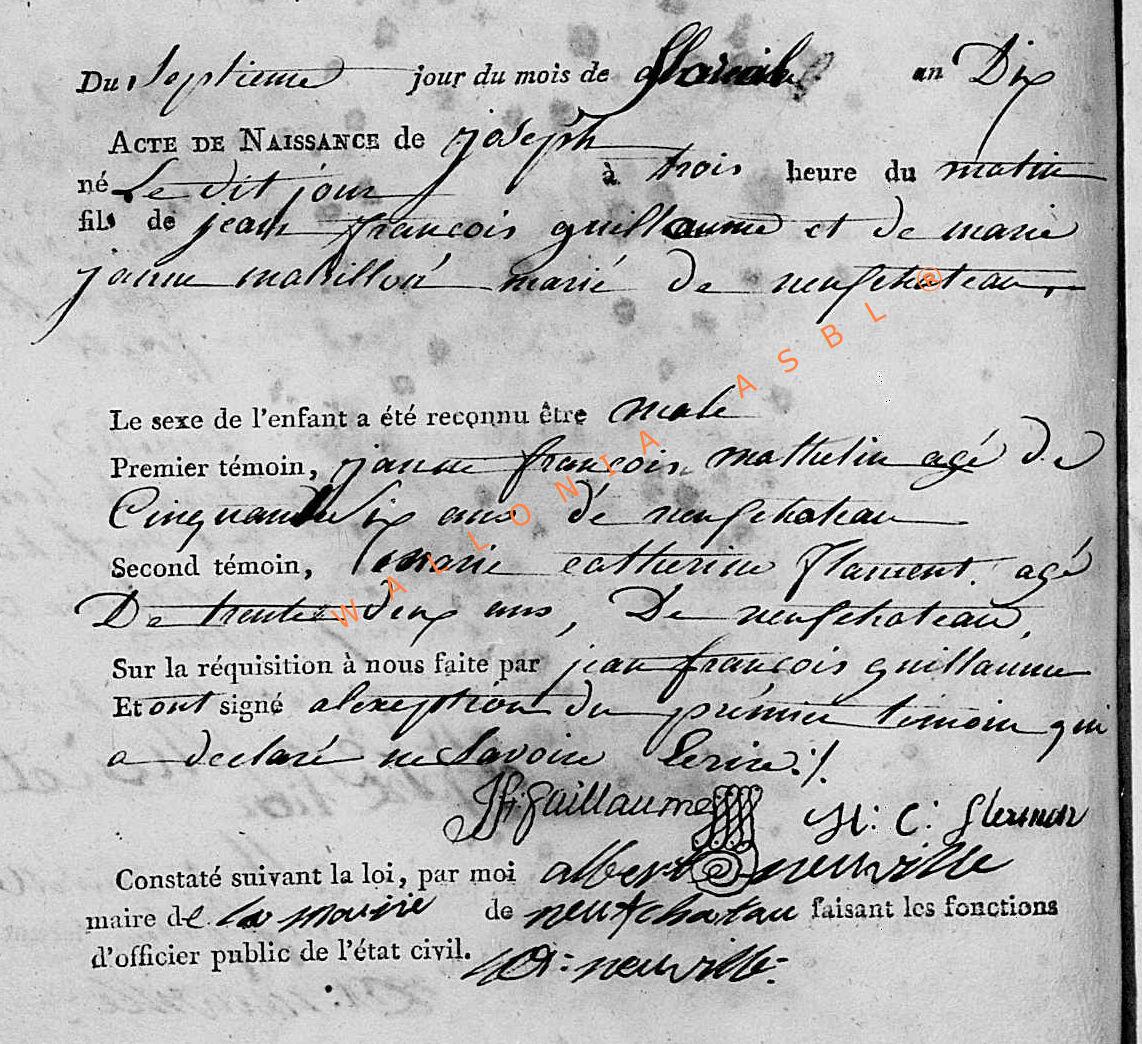 Du septieme jour du mois de floreal an Dix
ACTE DE NAISSANCE de joseph
né Le dit jour à trois heure du matin
fils de jean francois guillaume et de marie
janne marié de neufchateau
Le sexe de l'enfant a été reconnu être male
Premier témoin, janne francois mathelin agé de
Cinquante Six ans dé neufchateau
Second témoin, marie catherine flament. agé
De trente deux ans, De neufchateau,
Sur la réquisition à nous faite par jean francois guillaume
Et ont signé alexeption du prémier témoin qui
a declaré ne Savoire Ecrire ./.
JF Guillaume M: C:
Constaté suivant la loi, par moi albert neuville
maire de la mairie de neufchatau faisant les fonctions
d'officier public de l'état civil. A: neuville
WALLONIA ASBL @